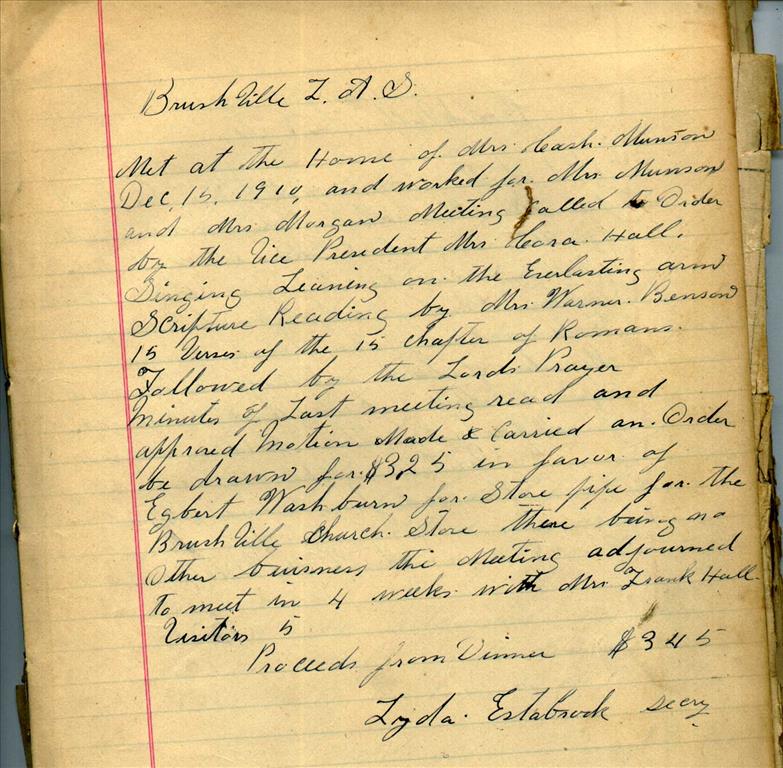 Brushville L. A. S.
Met at the Home of Mrs Cash. Munson
Dec, 15, 1910, and worked for Mrs Munson
and Mrs Morgan Meeting Called to Order
by the Vice President Mrs Cora. Hall.
Singing Leaning on the Everlasting arm
Scripture Reading by Mrs Warner. Benson
15 Verses of the 15 chapter of Romans.
Followed by the Lords Prayer
Minutes of Last meeting read and
approved Motion Made & Carried an Order
be drawn for $325 in favor of
Egbert Washburn for Stove pipe for the
Brushville Church. Stove there being no
Other buisness the Meeting adjourned
to meet in 4 weeks with Mrs Frank Hall.
Visitors 5
Proceeds from Dinner $345
Lyda. Estabrook secry